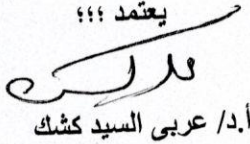 يعتمد ؛؛؛
أ.د/ عربى السيد كشك